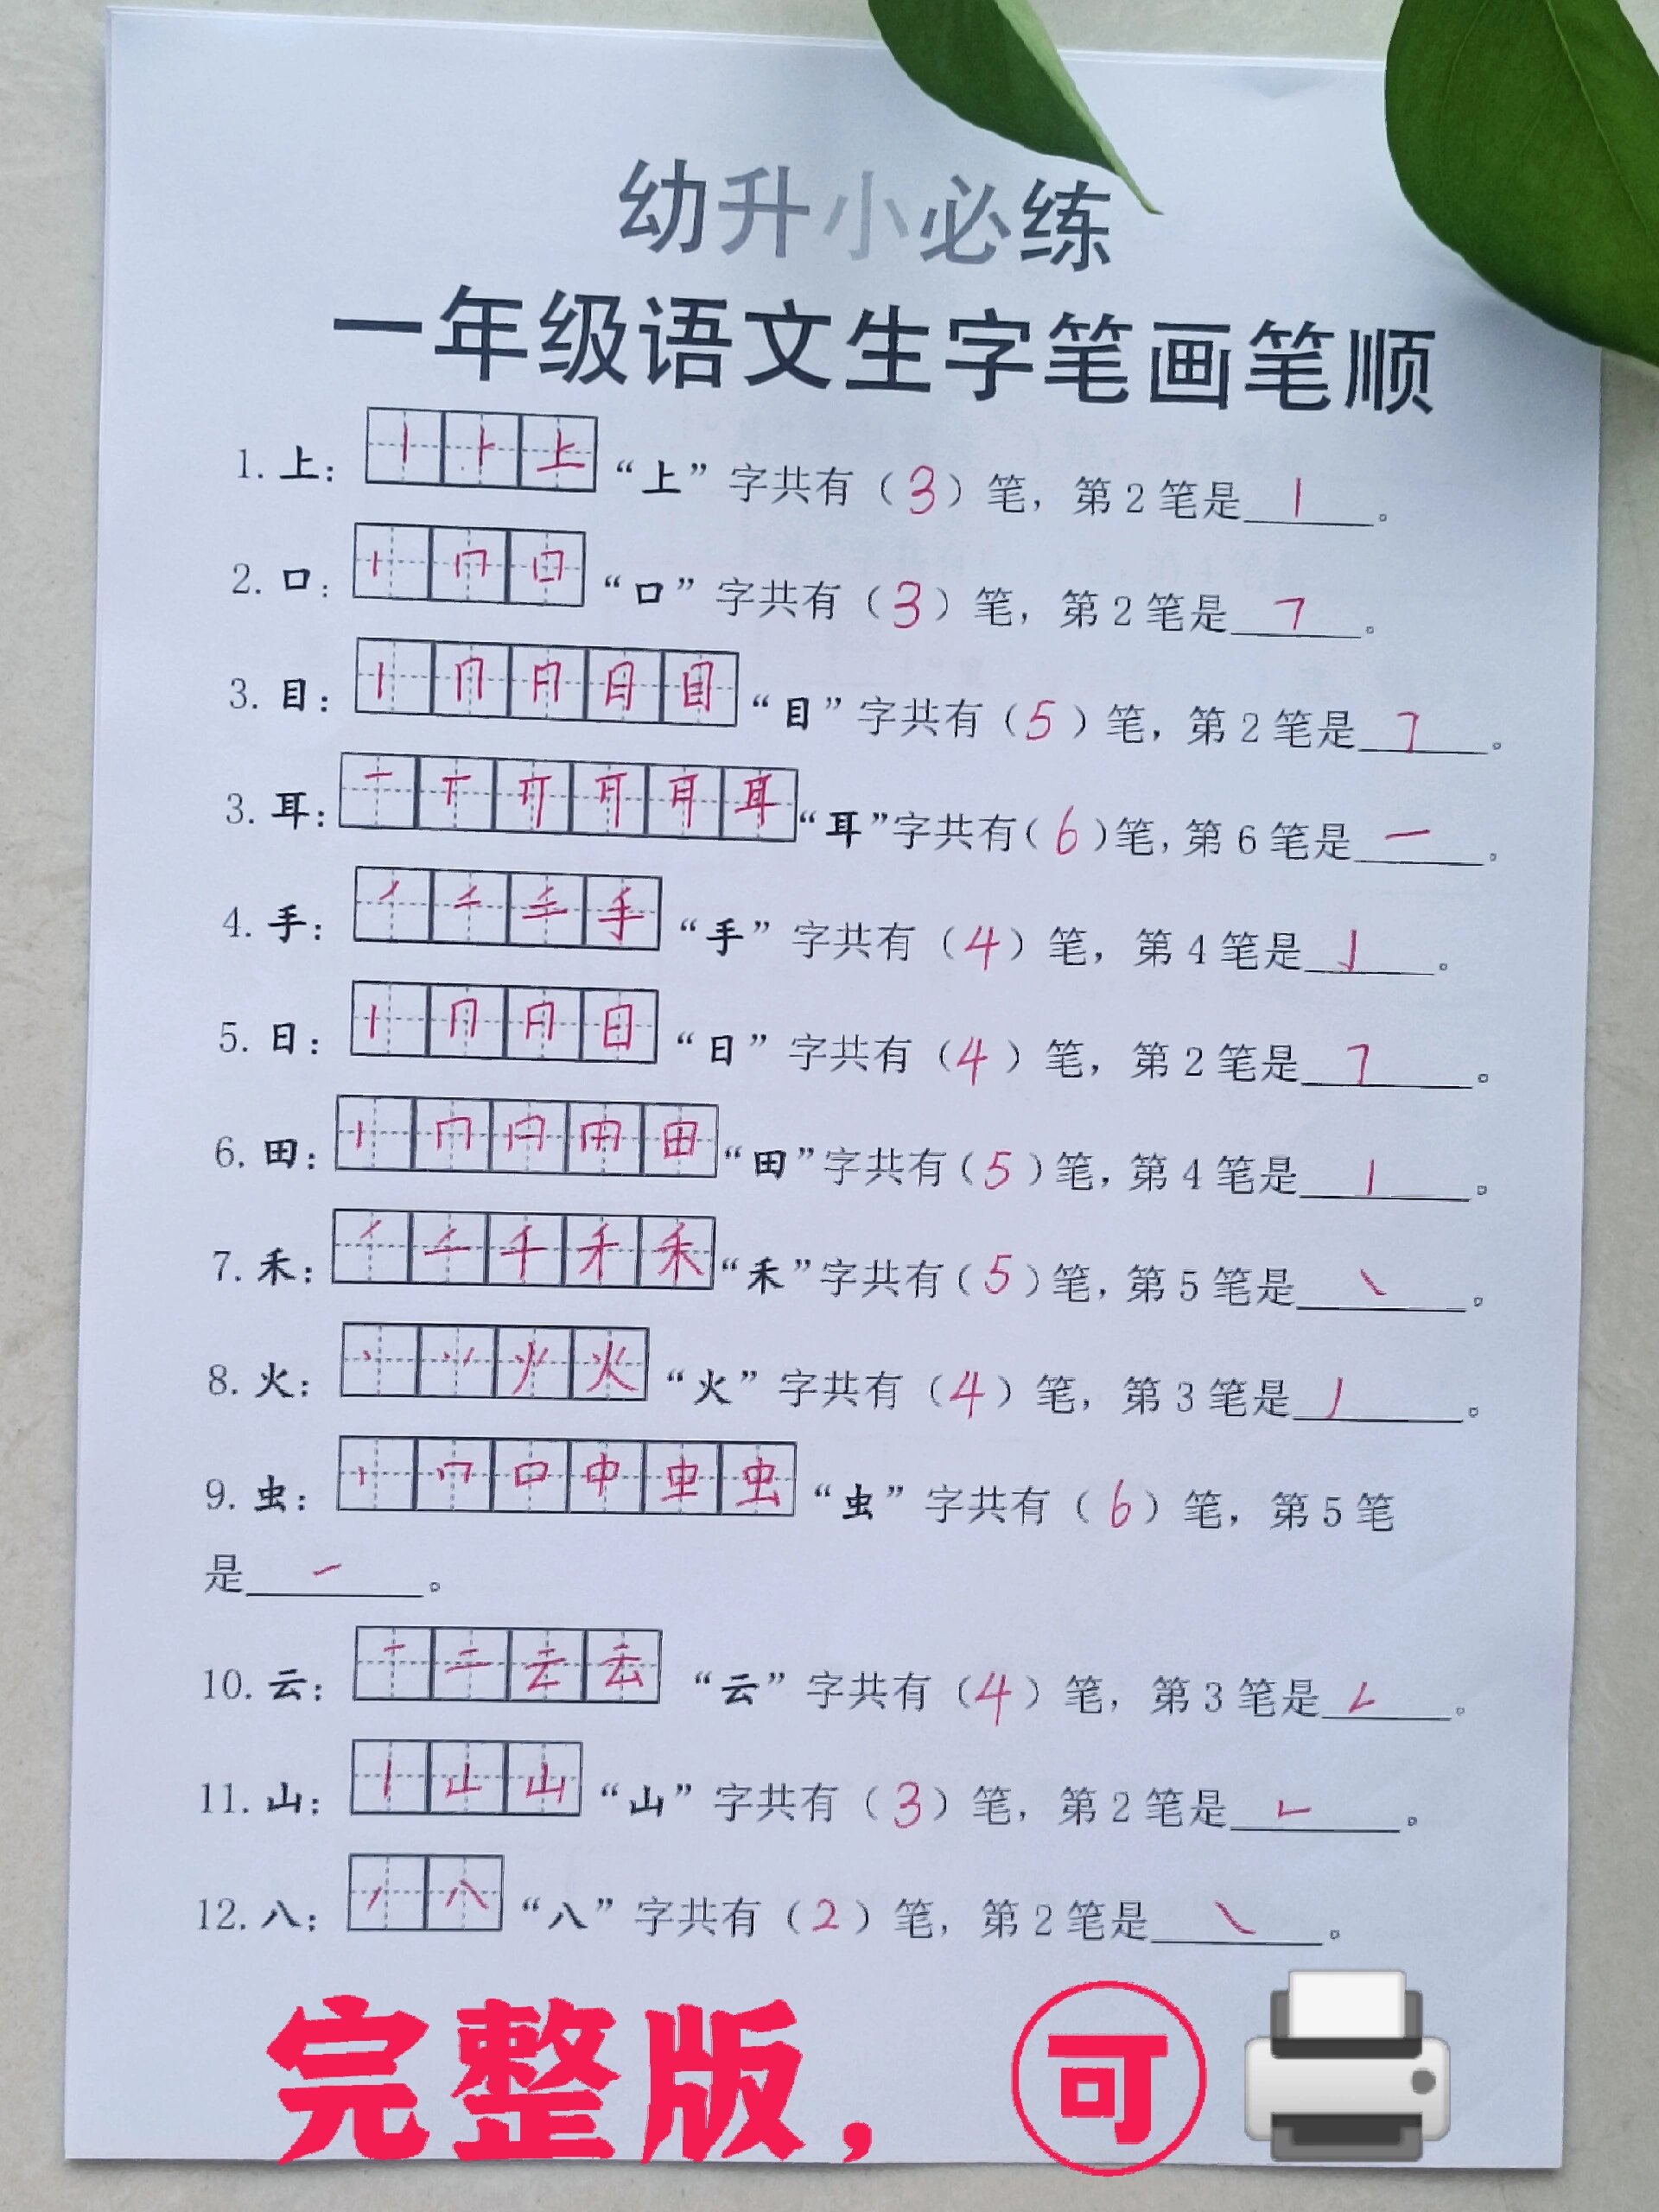 幼升小必练
一年级语文生字笔画笔顺
1. 上： 丨 ⺊ 上 “上”字共有（3）笔，第2笔是 丨 。
2. 口： 丨 冂 口 “口”字共有（3）笔，第2笔是 ㇕ 。
3. 目： 丨 冂 月 日 目 “目”字共有（5）笔，第2笔是 ㇆ 。
3. 耳： 一 丅 丌 耳 “耳”字共有（6）笔，第6笔是 一 。
4. 手： ㇒ 二 三 手 “手”字共有（4）笔，第4笔是 亅 。
5. 日： 丨 冂 月 日 “日”字共有（4）笔，第2笔是 ㇕ 。
6. 田： 丨 冂 田 “田”字共有（5）笔，第4笔是 丨 。
7. 禾： ㇒ 二 千 禾 “禾”字共有（5）笔，第5笔是 ㇏ 。
8. 火： 丶 丷 火 “火”字共有（4）笔，第3笔是 丿 。
9. 虫： 丨 冂 口 中 虫 “虫”字共有（6）笔，第5笔
是 ㇀ 。
10. 云： 一 二 云 “云”字共有（4）笔，第3笔是 ㇜ 。
11. 山： 丨 山 “山”字共有（3）笔，第2笔是 ㇗ 。
12. 八： 丿 八 “八”字共有（2）笔，第2笔是 ㇏ 。
完整版，可